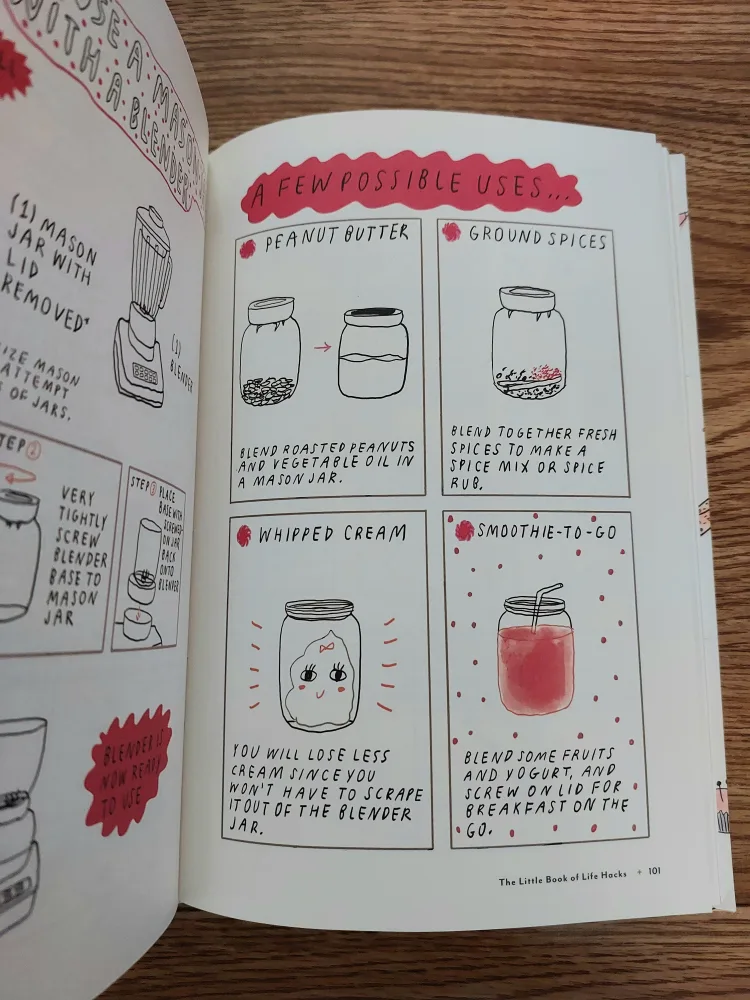 USE A MASON
WITH A BLENDER
(1) MASON
JAR WITH
LID
REMOVED*
(1)
BLENDER
MASON
ATTEMPT
OF JARS.
STEP 2
VERY
TIGHTLY
SCREW
BLENDER
BASE TO
MASON
JAR
STEP 3
PLACE
BASE WITH
SCREWED-
ON JAR
BACK
ONTO
BLENDER
BLENDER IS
NOW READY
TO USE
A FEW POSSIBLE USES...
PEANUT BUTTER
BLEND ROASTED PEANUTS
AND VEGETABLE OIL IN
A MASON JAR.
GROUND SPICES
BLEND TOGETHER FRESH
SPICES TO MAKE A
SPICE MIX OR SPICE
RUB.
WHIPPED CREAM
YOU WILL LOSE LESS
CREAM SINCE YOU
WON'T HAVE TO SCRAPE
IT OUT OF THE BLENDER
JAR.
SMOOTHIE-TO-GO
BLEND SOME FRUITS
AND YOGURT, AND
SCREW ON LID FOR
BREAKFAST ON THE
GO.
The Little Book of Life Hacks + 101